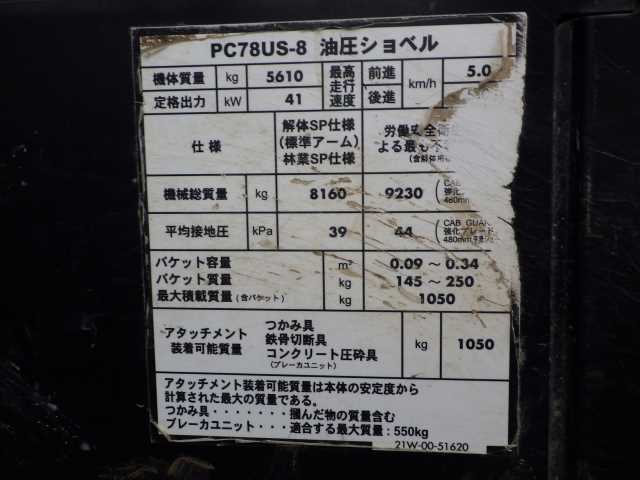 PC78US-8 油圧ショベル
機体質量 kg 5610 最高走行速度 前進 km/h 5.0
定格出力 kW 41 後進
仕様 解体SP仕様 (標準アーム) 林業SP仕様 労働安全衛 よる最も不
機械総質量 kg 8160 9230 (CAB 強化 480mm
平均接地圧 kPa 39 44 (CAB GUA 強化ブレード 480mm
バケット容量 m³ 0.09 ～ 0.34
バケット質量 kg 145 ～ 250
最大積載質量 (含バケット) kg 1050
アタッチメント装着可能質量 つかみ具 鉄骨切断具 コンクリート圧砕具 (ブレーカユニット) kg 1050
アタッチメント装着可能質量は本体の安定度から
計算された最大の質量である。
つかみ具・・・・・・・掴んだ物の質量含む
ブレーカユニット・・・・適合する最大質量：550kg
21W-00-51620